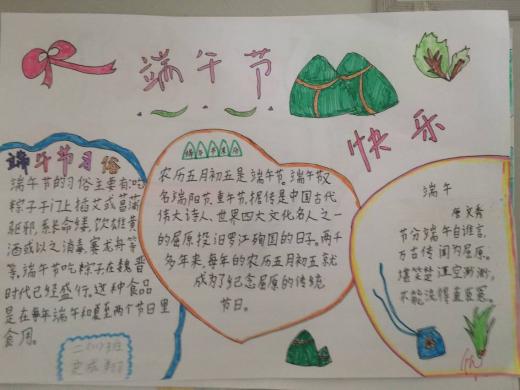 端午节
快乐
端午节习俗
端午节的习俗主要有:吃
粽子于门上插艾或菖蒲
驱邪,系长命缕,饮雄黄
酒或以之消毒,赛龙舟等
等,端午节吃粽子在魏晋
时代已经盛行。这种食品
是在每年端午和夏至两个节日里
食用。
农历五月初五是端午节。端午节又
名端阳节,重午节,据传是中国古代
伟大诗人、世界四大文化名人之一
的屈原投汨罗江殉国的日子。两千
多年来,每年的农历五月初五就
成为了纪念屈原的传统
节日。
端午
唐 文秀
节分端午自谁言,
万古传闻为屈原。
堪笑楚江空渺渺,
不能洗得直臣冤。